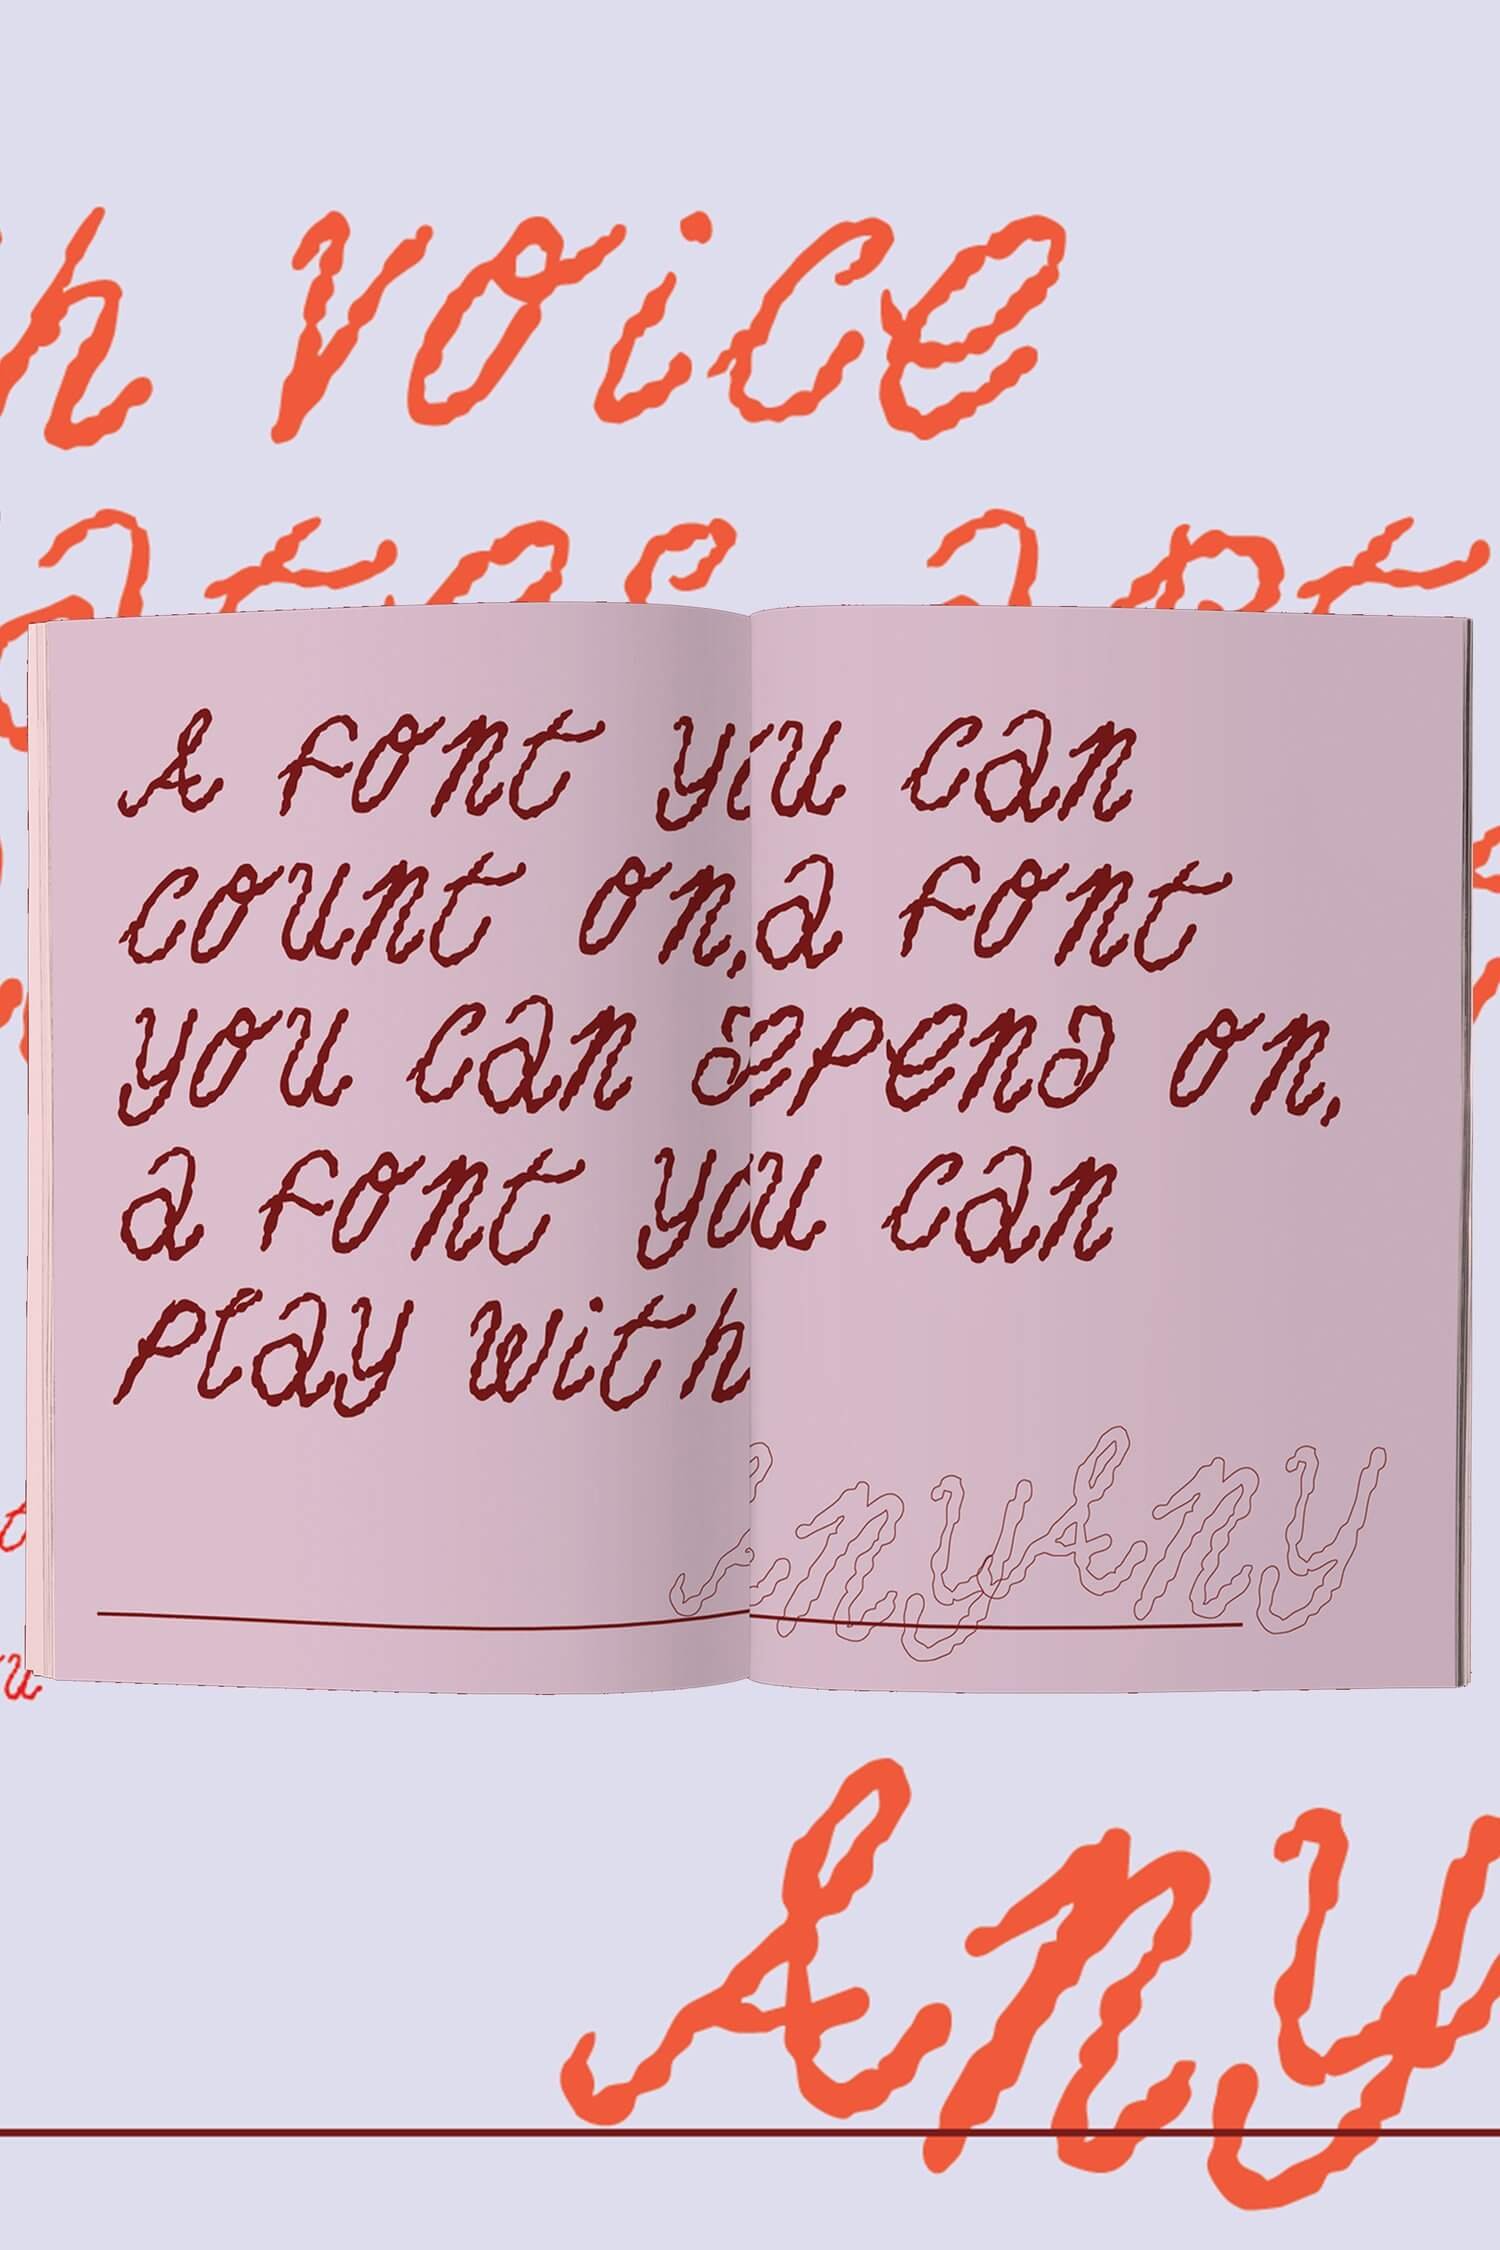 voice
A font you can
count on, a font
you can depend on,
a font you can
play with
AnyAny
Any